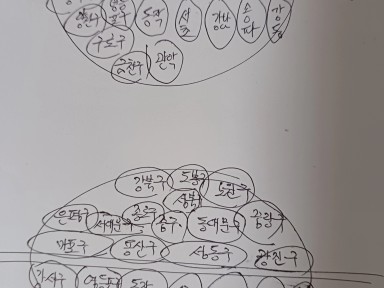 양천구 영등포구 동작 서초 강남 송파 강동
구로구
금천구 관악
강북구 도봉구 노원구
성북
은평구 서대문구 종로구 중구 동대문구 중랑구
마포구 용산구 성동구 광진구
강서구 영등포 동작